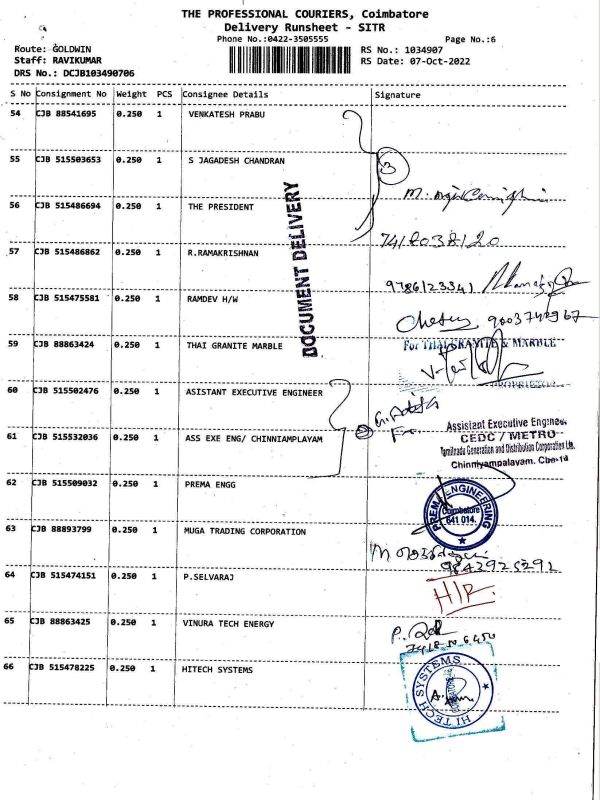 THE PROFESSIONAL COURIERS, Coimbatore
Delivery Runsheet - SITR
Phone No.:0422-3505555
Page No.:6
Route: GOLDWIN
RS No.: 1034907
Staff: RAVIKUMAR
RS Date: 07-Oct-2022
DRS No.: DCJB103490706
S No Consignment No Weight PCS Consignee Details Signature
54 CJB 88541695 0.250 1 VENKATESH PRABU
55 CJB 515503653 0.250 1 S JAGADESH CHANDRAN
3
56 CJB 515486694 0.250 1 THE PRESIDENT
7418038120
57 CJB 515486862 0.250 1 R.RAMAKRISHNAN
DOCUMENT DELIVERY
9786123341
58 CJB 515475581 0.250 1 RAMDEV H/W
59 CJB 88863424 0.250 1 THAI GRANITE MARBLE
For THAI GRANITE & MARBLE
PROPRIETOR
60 CJB 515502476 0.250 1 ASISTANT EXECUTIVE ENGINEER
61 CJB 515532036 0.250 1 ASS EXE ENG/ CHINNIAMPLAYAM
Assistant Executive Engineer
CEDC / METRO
Tamilnadu Generation and Distribution Corporation Ltd.
Chinniyampalayam, Cbe-14
62 CJB 515509032 0.250 1 PREMA ENGG
PREMA ENGINEERING
Coimbatore
641 014.
63 CJB 88893799 0.250 1 MUGA TRADING CORPORATION
64 CJB 515474151 0.250 1 P.SELVARAJ
65 CJB 88863425 0.250 1 VINURA TECH ENERGY
66 CJB 515478225 0.250 1 HITECH SYSTEMS
HI TECH SYSTEMS